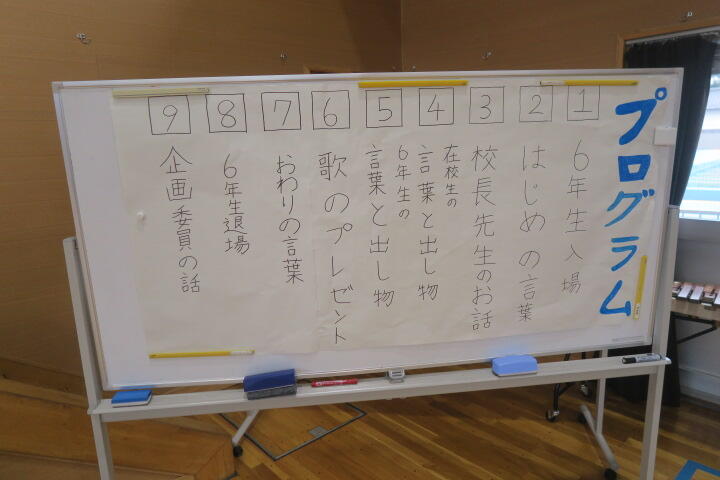 プログラム
1 6年生入場
2 はじめの言葉
3 校長先生のお話
4 在校生の
言葉と出し物
5 6年生の
言葉と出し物
6 歌のプレゼント
7 おわりの言葉
8 6年生退場
9 企画委員の話